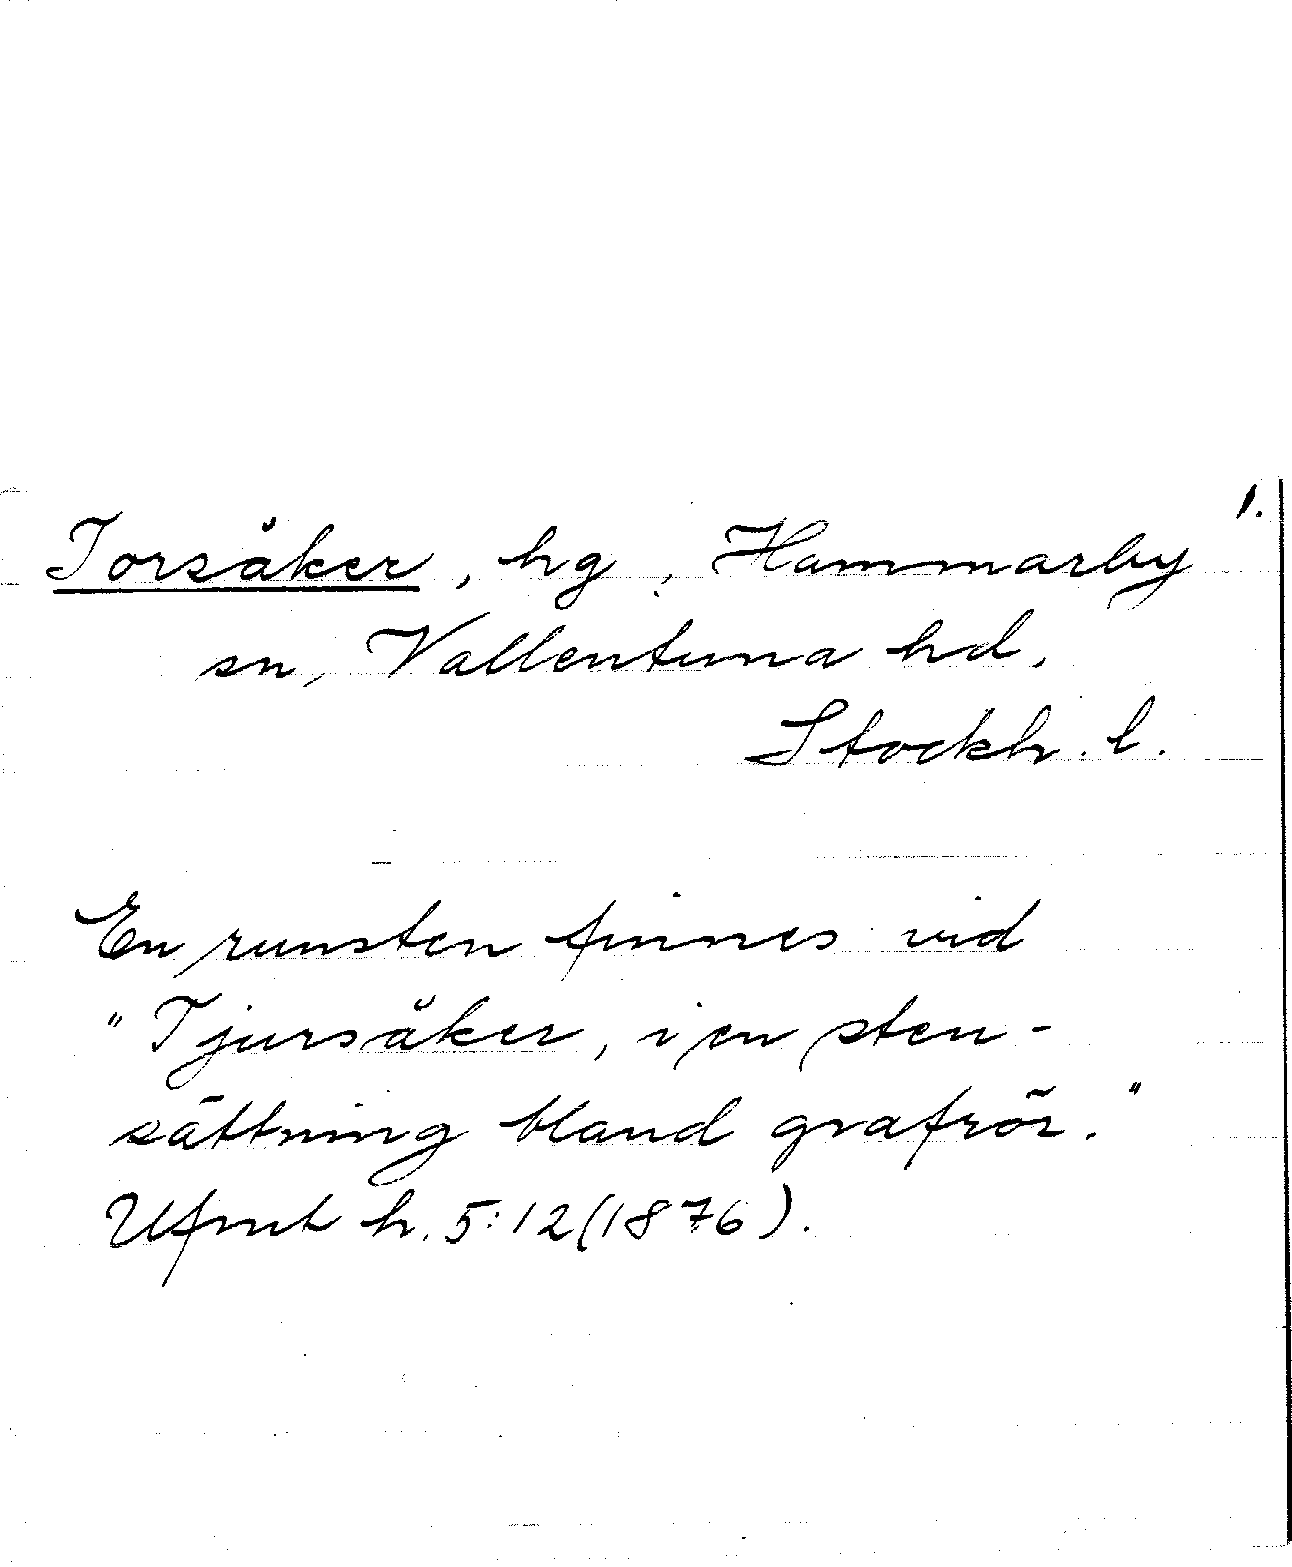 1.
Torsåker, hg, Hammarby
sn, Vallentuna hd,
Stockh. l.
En runsten finnes vid
"Tjursåker, i en sten-
sättning bland grafrör."
Ufmt h. 5:12 (1876).